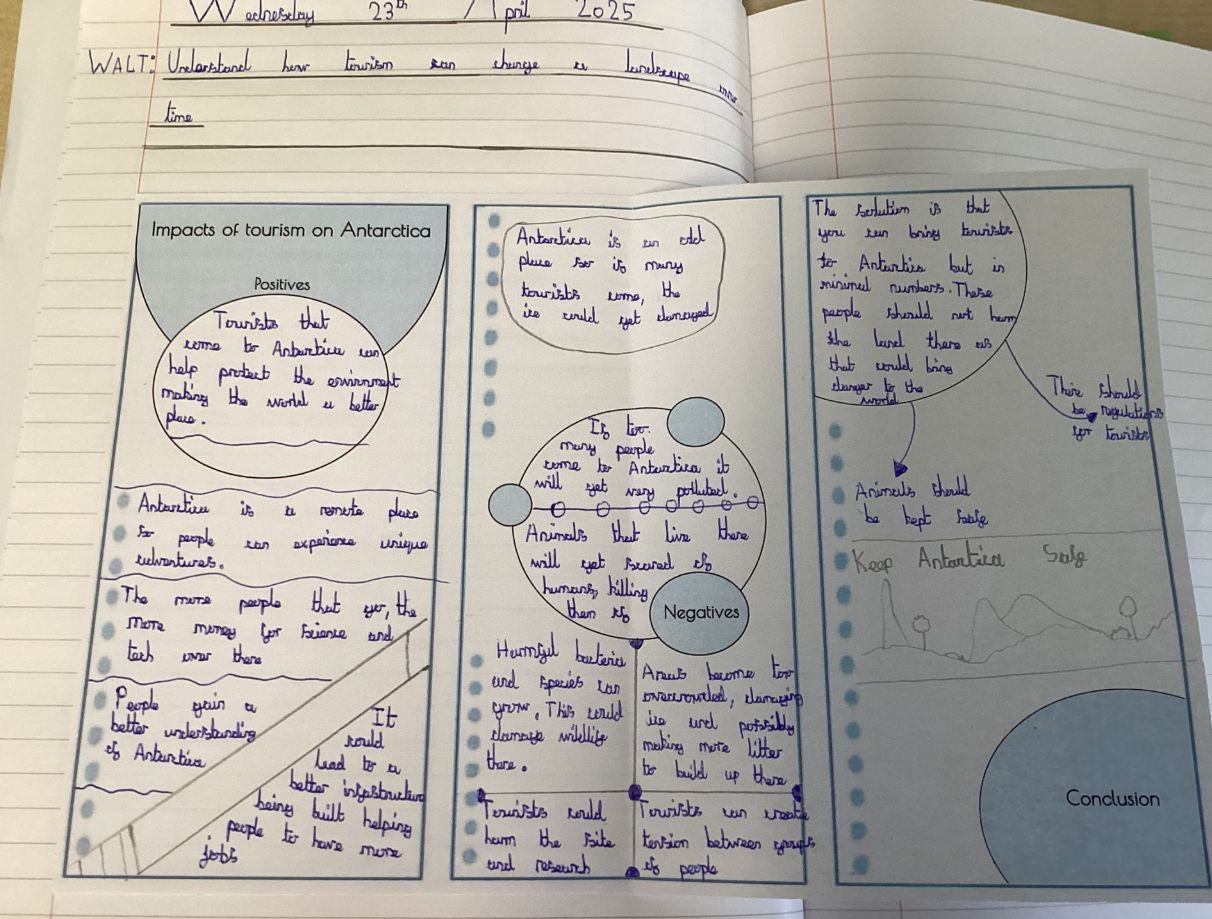 Wednesday 23th April 2025
WALT: Understand how tourism can change a landscape over
time
Impacts of tourism on Antarctica
Positives
Tourists that
come to Antarctica can
help protect the envirnment
making the world a better
place.
Antarctica is a remote place
so people can experience unique
adventures.
The more people that go, the
more money for science and
tech over there
People gain a
better understanding
of Antarctica
It
could
lead to a
better infastructure
being built helping
people to have more
jobs
Antarctica is an odd
place so if many
tourists come, the
ice could get damaged
If too
many people
come to Antarctica it
will get very polluted.
Animals that live there
will get scared of
humans, killing
them of
Negatives
Harmful bacteria
and species can
grow. This could
damage wildlife
there.
Areas become too
overcrowded, damaging
ice and possibly
making more litter
to build up there
Tourists could
harm the site
and research
Tourists can create
tension between groups
of people
The solution is that
you can bring tourists
to Antarctica but in
minimul numbers. These
people should not harm
the land there as
that could bring
danger to the
world
There should
be regulations
for tourists
Animals should
be kept safe
Keep Antarctica Safe
Conclusion